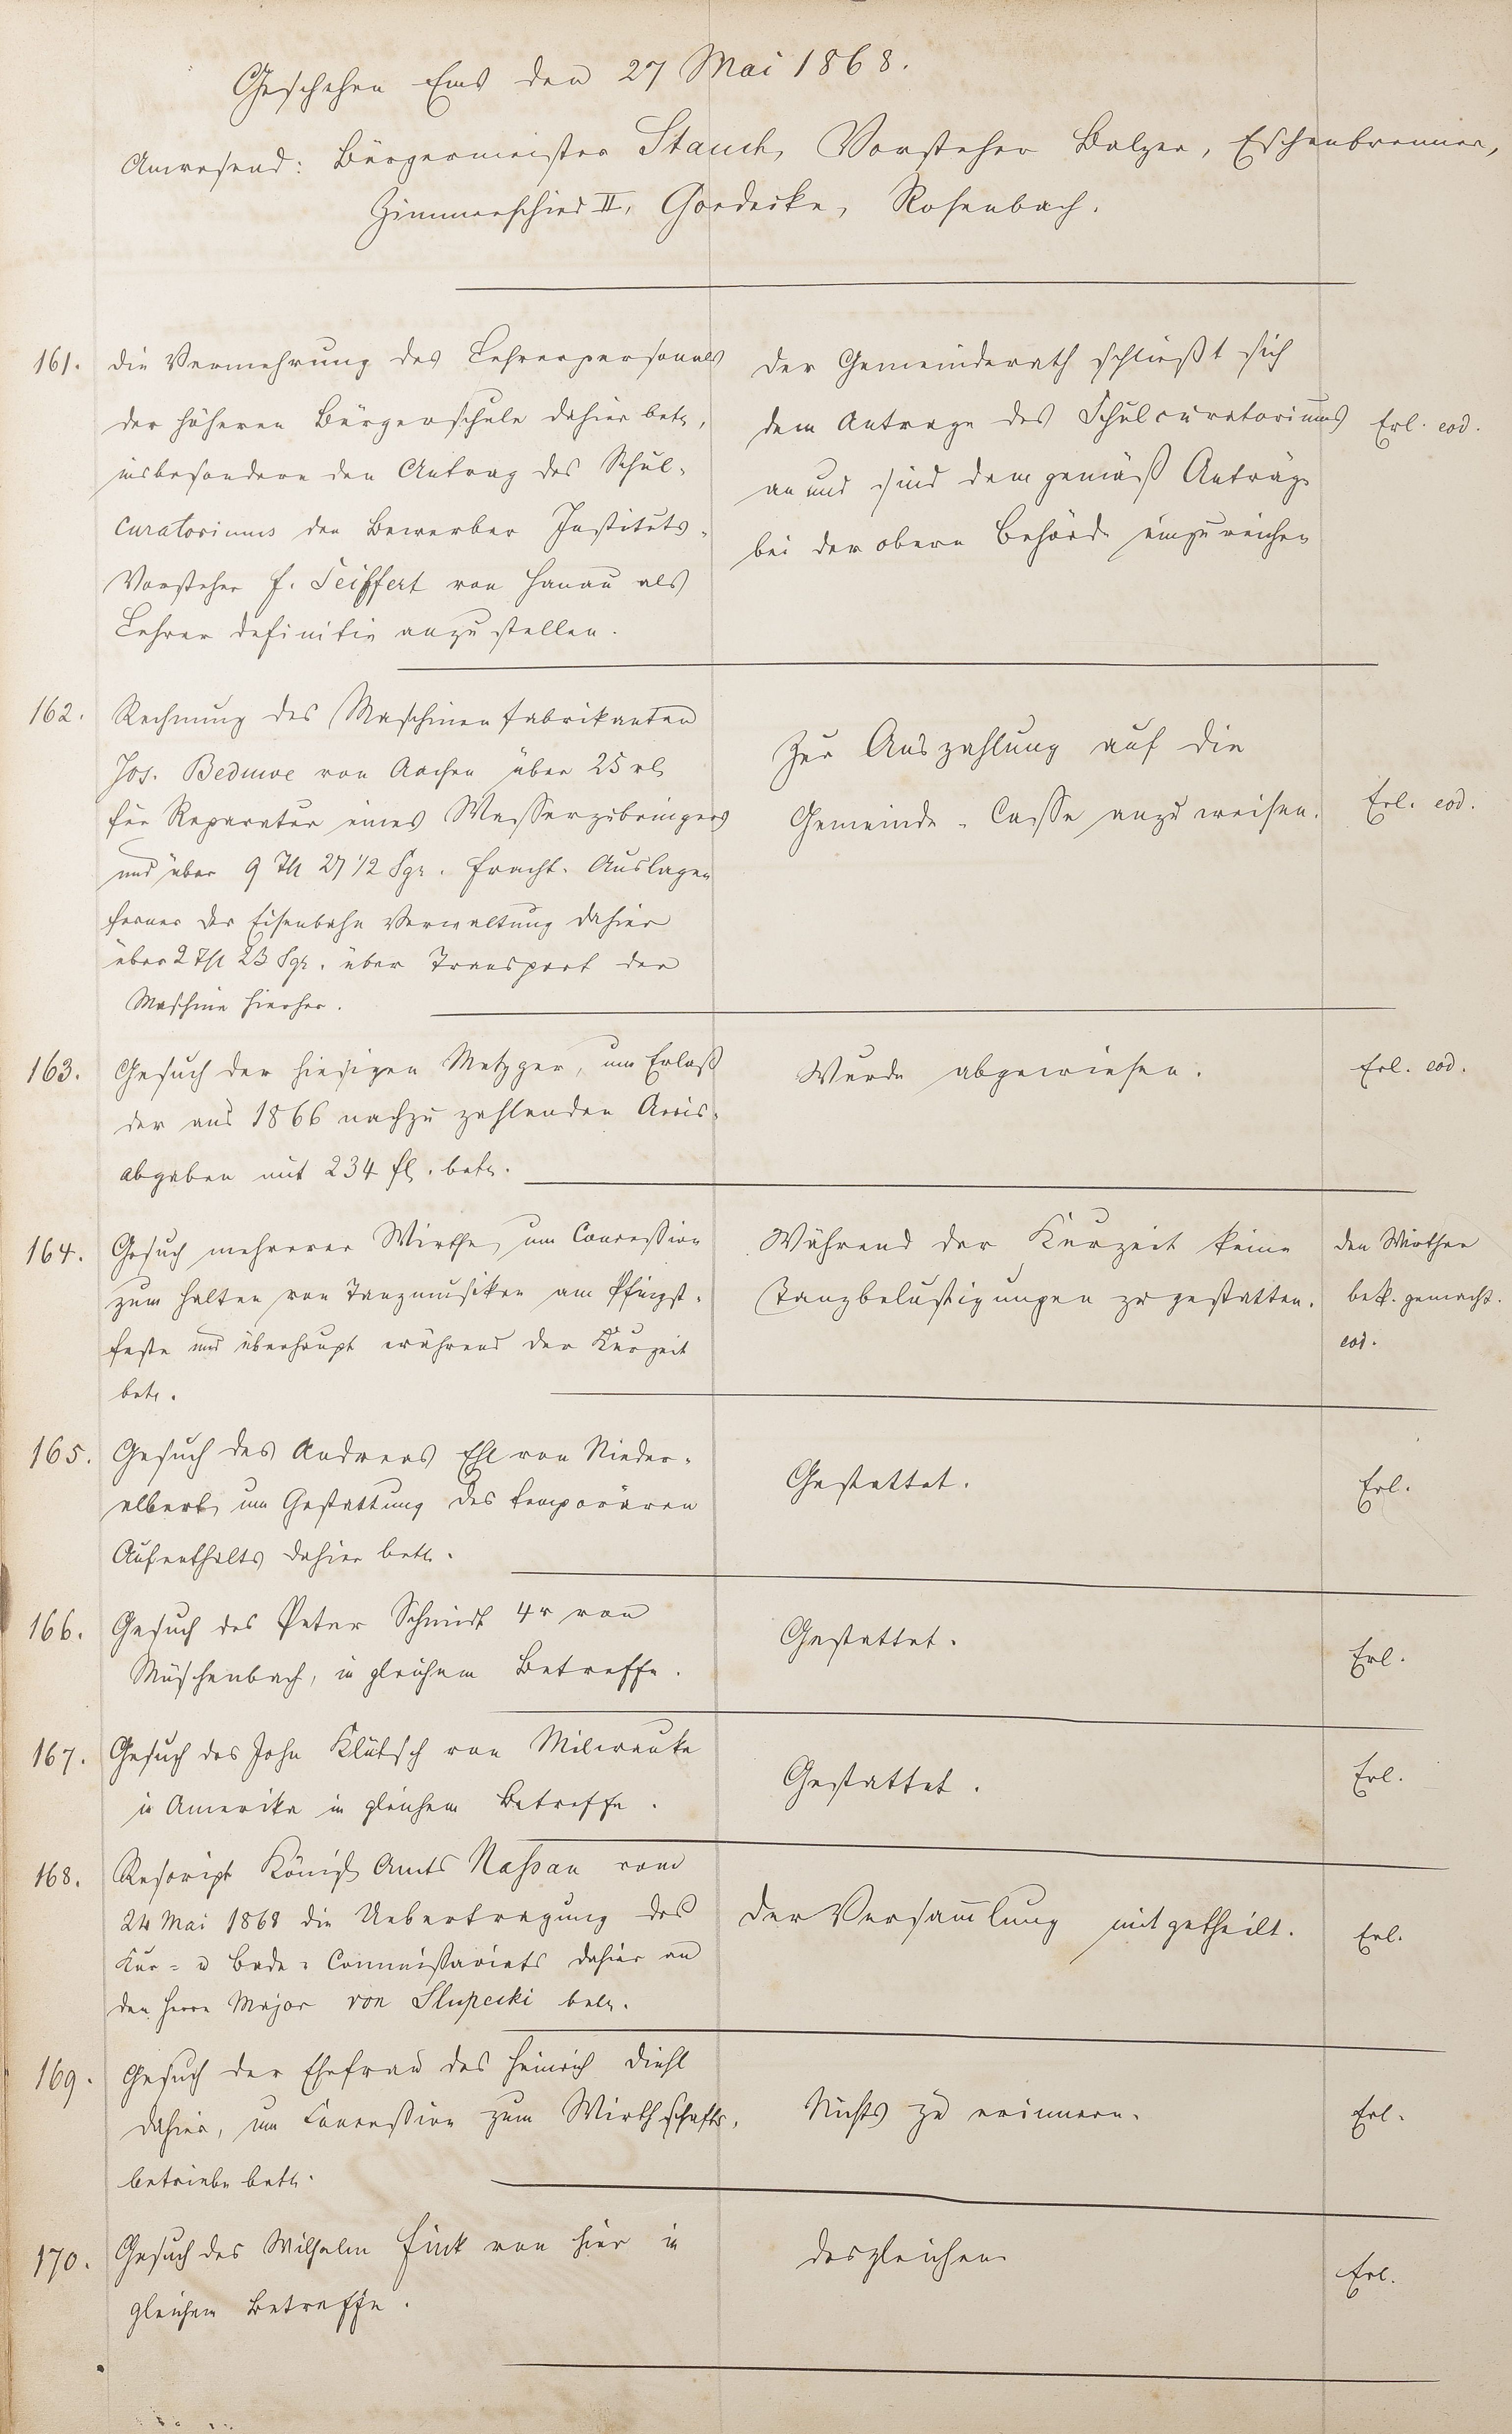 Geschehen Ems den 27 Mai 1868.
Anwesend: Bürgermeister Stauch, Vorsteher Balzer, Eschenbrenner,
Zimmerschied II, Goedecke, Rosenbach.
161. die Vermehrung des Lehrerpersonals
der höheren Bürgerschule dahier betr,
insbesondere den Antrag des Schul-
curatoriums den Bewerber Instituts-
Vorsteher F. Seiffert von Hanau als
Lehrer definitiv anzustellen.
der Gemeinderath schließt sich
dem Antrage des Schulcuratoriums
an und sind dem gemäß Anträge
bei der obern Behörde einzureichen
Erl. eod.
162. Rechnung des Maschinenfabrikanten
Jos. Beduwe von Aachen über 25 rl
für Reparatur eines Wasserzubringers
und über 9 Th 27 1/2 Sgr. Fracht-Auslagen
ferner der Eisenbahn Verwaltung dahier
über 2 Th 23 Sgr. über Transport der
Maschine hierher.
Zur Auszahlung auf die
Gemeinde-Casse anzuweisen.
Erl. eod.
163. Gesuch der hiesigen Metzger, um Erlaß
der aus 1866 nachzuzahlenden Accis-
abgaben mit 234 fl. betr.
Wurde abgewiesen.
Erl. eod.
164. Gesuch mehrerer Wirthe, um Concession
zum Halten von Tanzmusiken am Pfingst-
feste und überhaupt während der Kurzeit
betr.
Während der Kurzeit keine
Tanzbelustigungen zu gestatten.
den Wirthen
bek. gemacht.
eod.
165. Gesuch des Andreas Ehl von Nieder-
elbert, um Gestattung des temporären
Aufenthalts dahier betr.
Gestattet.
Erl.
166. Gesuch des Peter Schmidt 4r von
Müschenbach, in gleichem Betreffe.
Gestattet.
Erl.
167. Gesuch des John Klütsch von Milwauke
in Amerika in gleichem Betreffe.
Gestattet.
Erl.
168. Rescript Königl Amts Nassau vom
24 Mai 1868 die Uebertragung des
Kur- u Bade-Commissariats dahier an
den Herrn Major von Slupecki betr.
der Versam̅lung mitgetheilt.
Erl.
169. Gesuch der Ehefrau des Heinrich Diehl
dahier, um Concession zum Wirthschafts-
betriebe betr.
Nichts zu erinnern.
Erl.
170. Gesuch des Wilhelm Fink von hier in
gleichem Betreffe.
desgleichen
Erl.